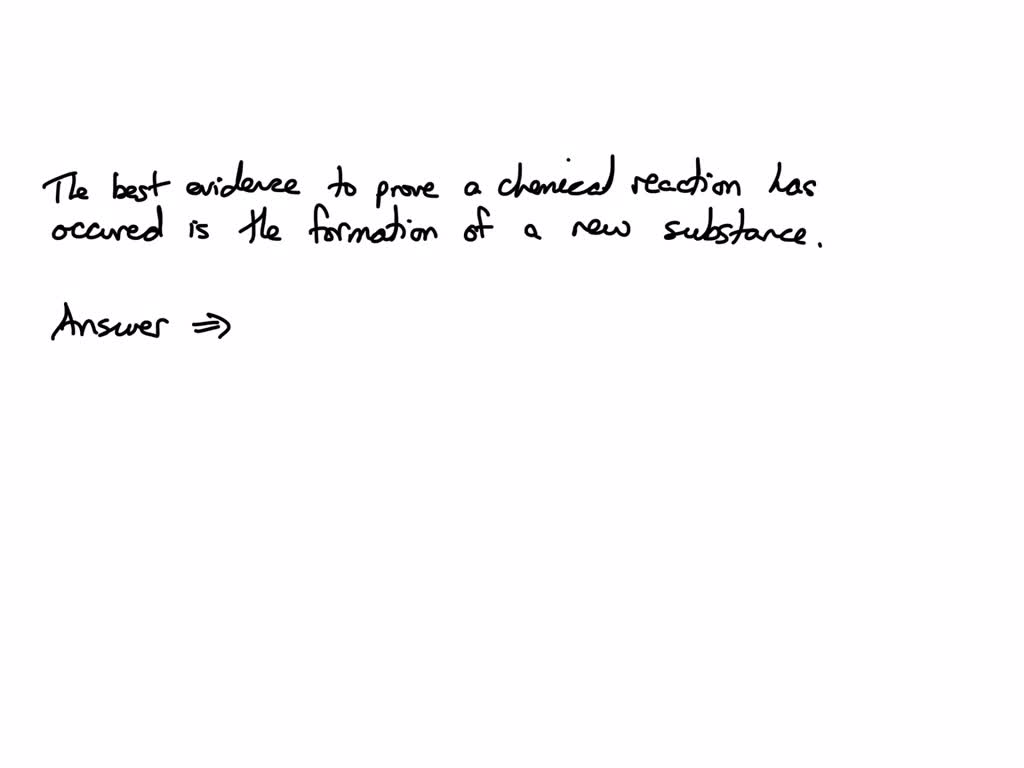 The best evidence to prove a chemical reaction has
occured is the formation of a new substance.
Answer ⇒